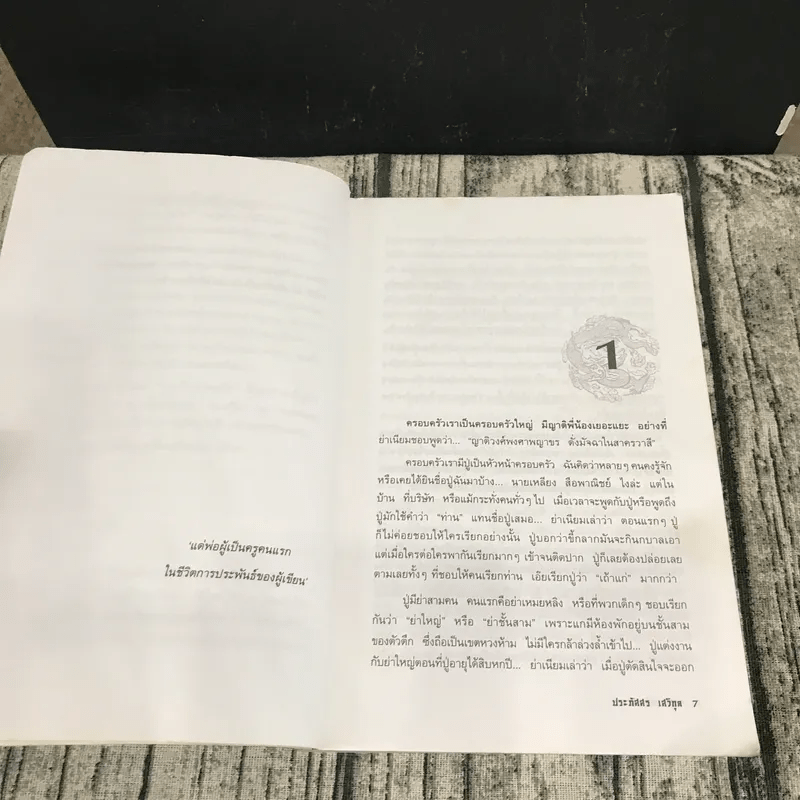 'แด่พ่อผู้เป็นครูคนแรก
ในชีวิตการประพันธ์ของผู้เขียน'
1
ครอบครัวเราเป็นครอบครัวใหญ่ มีญาติพี่น้องเยอะแยะ อย่างที่
ย่าเนียมชอบพูดว่า... "ญาติวงศ์พงศาพญาขร ดั่งมัจฉาในสาครวาสี"
ครอบครัวเรามีปู่เป็นหัวหน้าครอบครัว ฉันคิดว่าหลายๆ คนคงรู้จัก
หรือเคยได้ยินชื่อปู่ฉันมาบ้าง... นายเหลียง สือพาณิชย์ ไงล่ะ แต่ใน
บ้าน ที่บริษัท หรือแม้กระทั่งคนทั่วๆ ไป เมื่อเวลาจะพูดกับปู่หรือพูดถึง
ปู่มักใช้คำว่า "ท่าน" แทนชื่อปู่เสมอ... ย่าเนียมเล่าว่า ตอนแรกๆ ปู่
ก็ไม่ค่อยชอบให้ใครเรียกอย่างนั้น ปู่บอกว่าขี้กลากมันจะกินกบาลเอา
แต่เมื่อใครต่อใครพากันเรียกมากๆ เข้าจนติดปาก ปู่ก็เลยต้องปล่อยเลย
ตามเลยทั้งๆ ที่ชอบให้คนเรียกท่าน เอ๊ยเรียกปู่ว่า "เถ้าแก่" มากกว่า
ปู่มีย่าสามคน คนแรกคือย่าเหมยหลิง หรือที่พวกเด็กๆ ชอบเรียก
กันว่า "ย่าใหญ่" หรือ "ย่าชั้นสาม" เพราะแกมีห้องพักอยู่บนชั้นสาม
ของตัวตึก ซึ่งถือเป็นเขตหวงห้าม ไม่มีใครกล้าล่วงล้ำเข้าไป... ปู่แต่งงาน
กับย่าใหญ่ตอนที่ปู่อายุได้สิบหกปี... ย่าเนียมเล่าว่า เมื่อปู่ตัดสินใจจะออก
ประภัสสร เสวิกุล 7